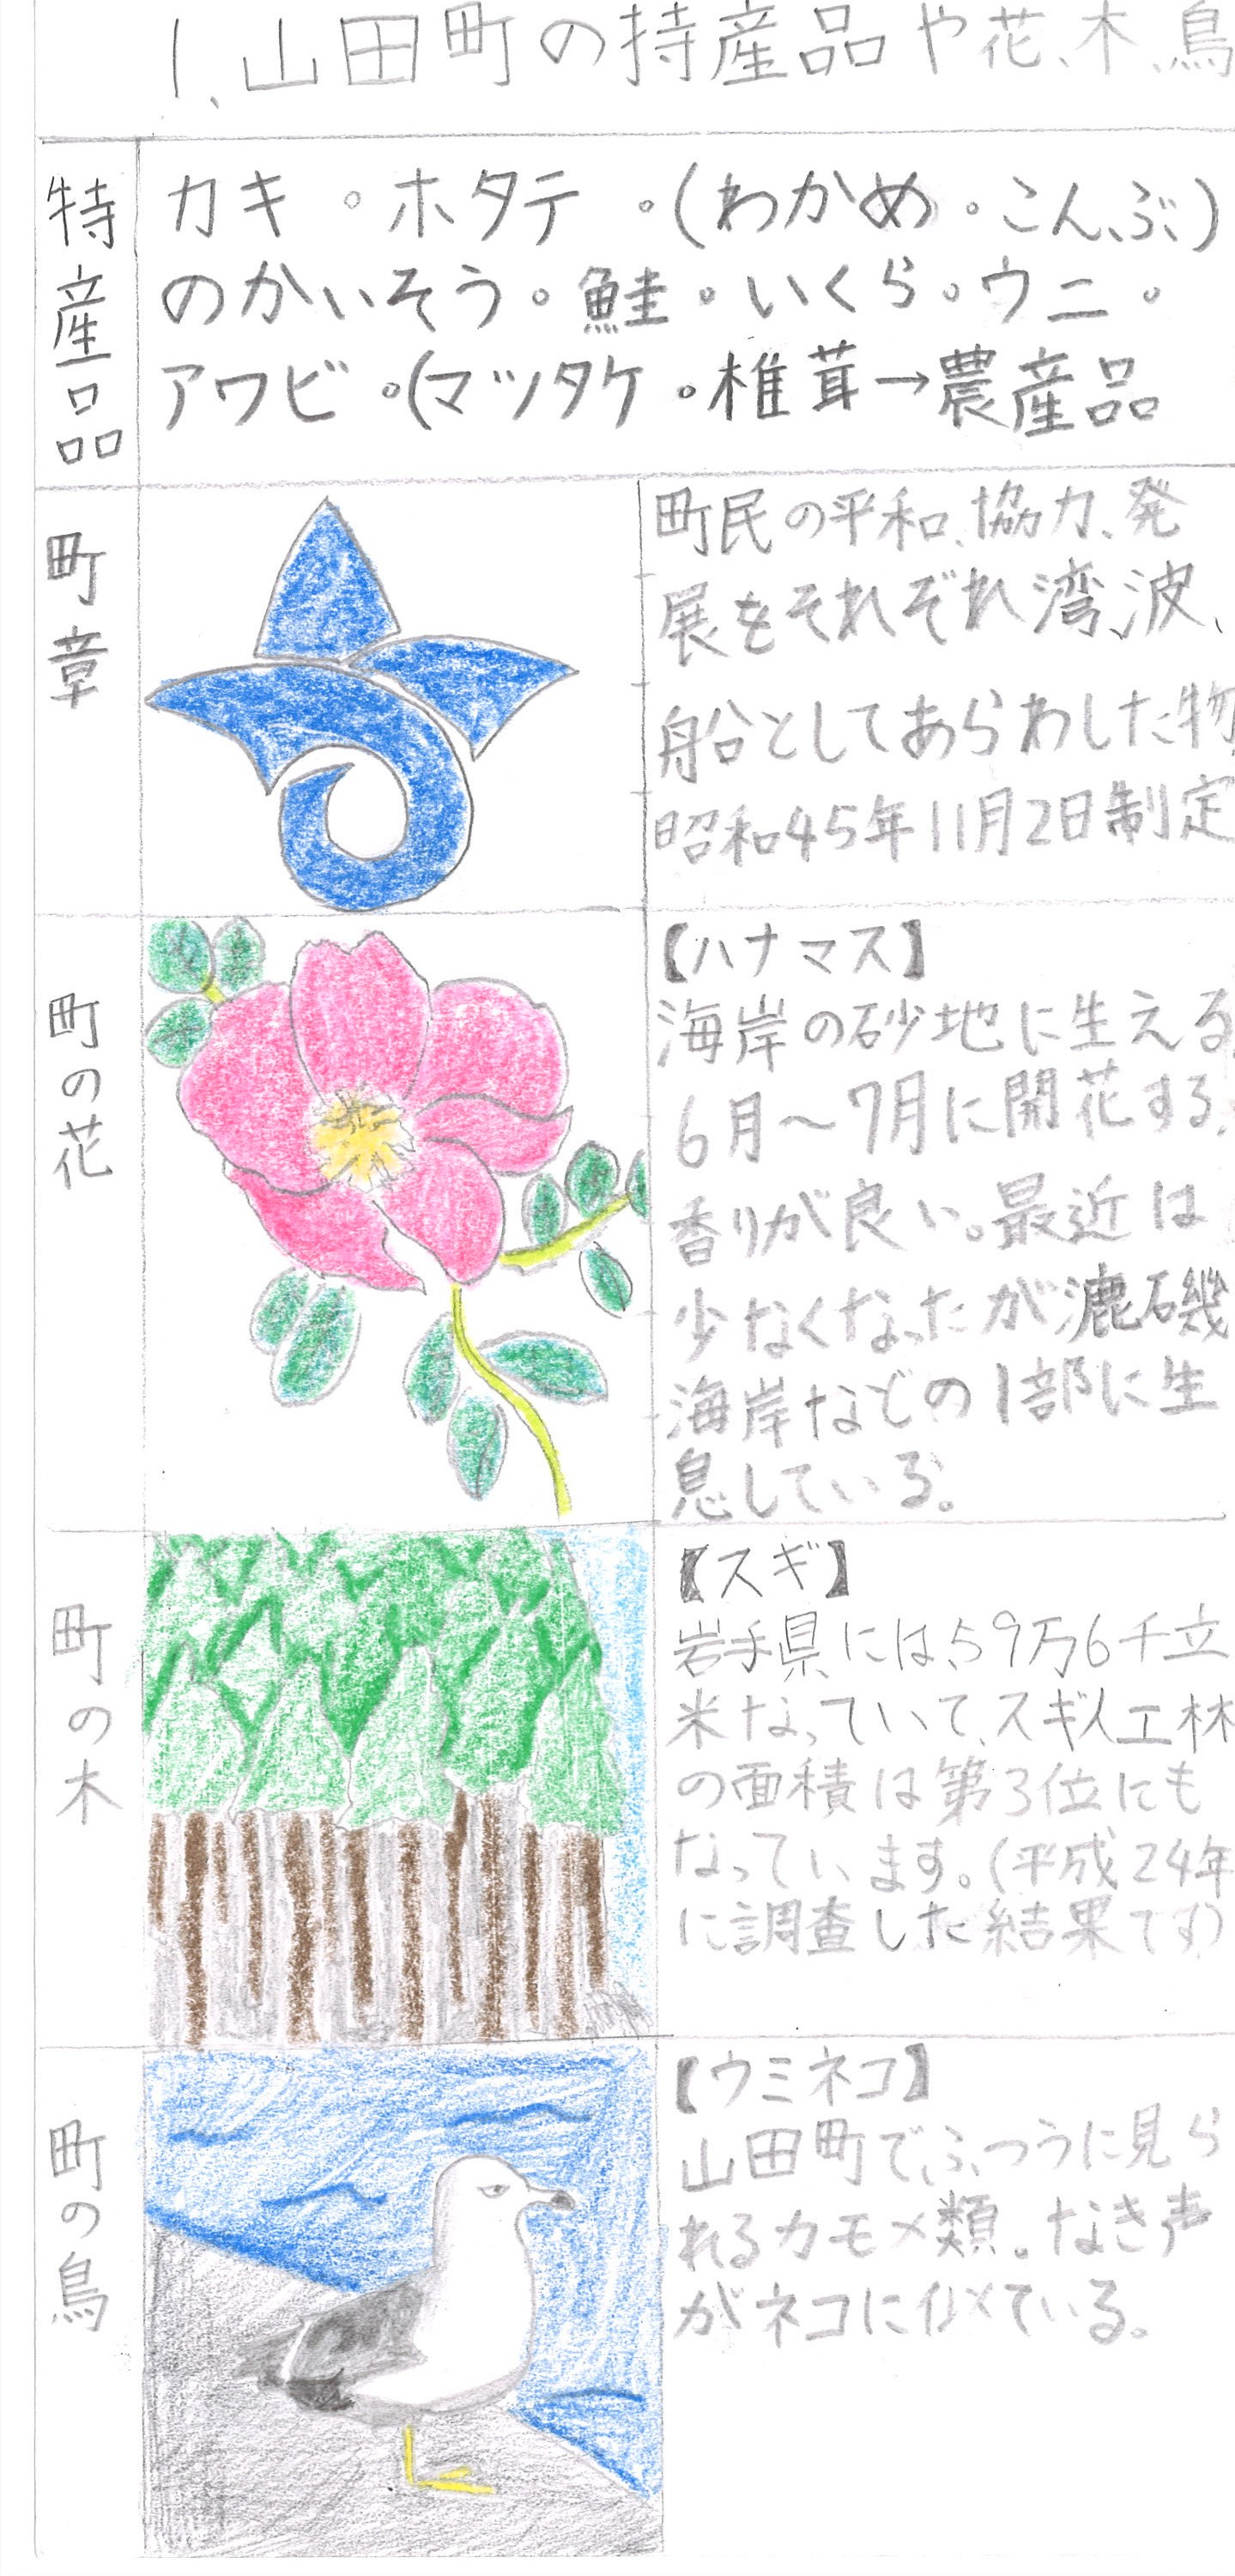 1、山田町の持産品や花、木、鳥
特産品
カキ・ホタテ・(わかめ・こんぶ)
のかいそう・鮭・いくら・ウニ・
アワビ・(マツタケ・椎茸→農産品
町章
町民の平和、協力、発
展をそれぞれ湾、波、
船としてあらわした物
昭和45年11月2日制定
町の花
【ハナマス】
海岸の砂地に生える。
6月〜7月に開花する。
香りが良い。最近は
少なくなったが漉石磯
海岸などの1部に生
息している。
町の木
【スギ】
岩手県には、59万6千立
米なっていて、スギ人工林
の面積は第3位にも
なっています。(平成24年
に調査した結果です)
町の鳥
【ウミネコ】
山田町でふつうに見ら
れるカモメ類。なき声
がネコに似ている。